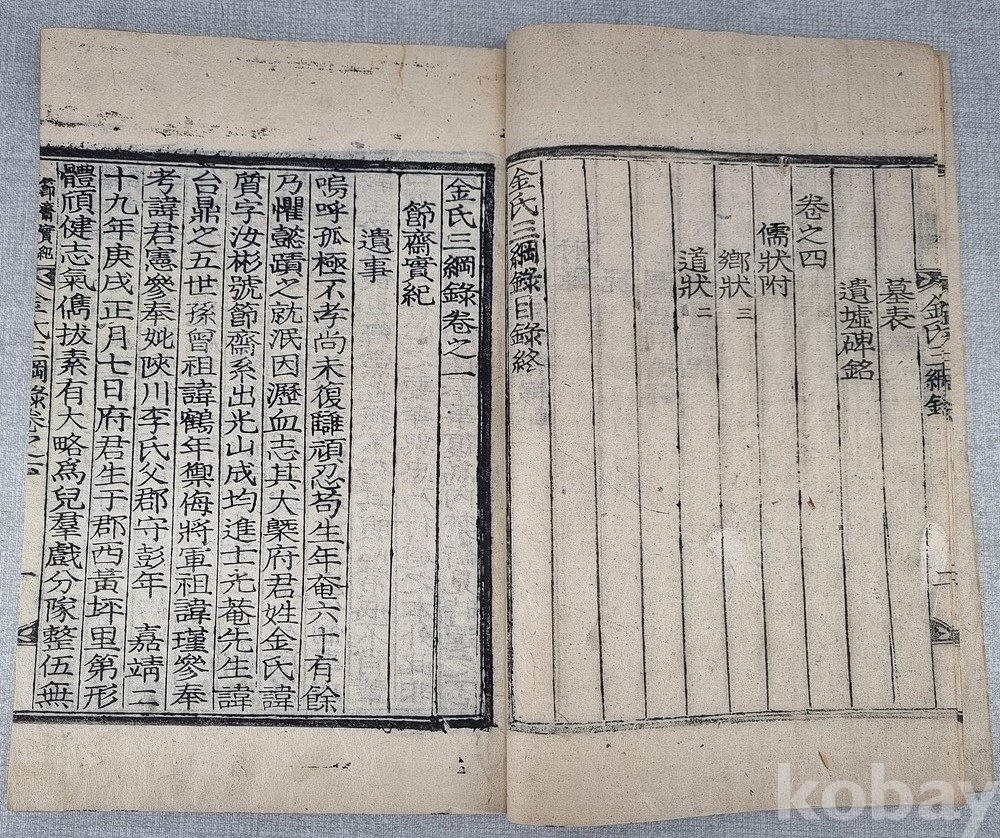 金氏三綱錄
二
墓表
遺墟碑銘
卷之四
儒狀附
鄕狀 三
道狀 二
金氏三綱錄目錄終
金氏三綱錄卷之一
節齋實紀
遺事
嗚呼孤極不孝尚未復讎頑忍苟生年奄六十有餘
乃懼懿蹟之就泯因瀝血志其大槩府君姓金氏諱
質字汝彬號節齋系出光山成均進士光菴先生諱
台鼎之五世孫曾祖諱鶴年禦侮將軍祖諱瑾參奉
考諱君憲參奉妣陜川李氏父郡守彭年 嘉靖二
十九年庚戌正月七日府君生于郡西黃坪里第形
體頎健志氣儁拔素有大略爲兒羣戲分隊整伍無
節齋實紀 金氏三綱錄卷之一
一
kobay